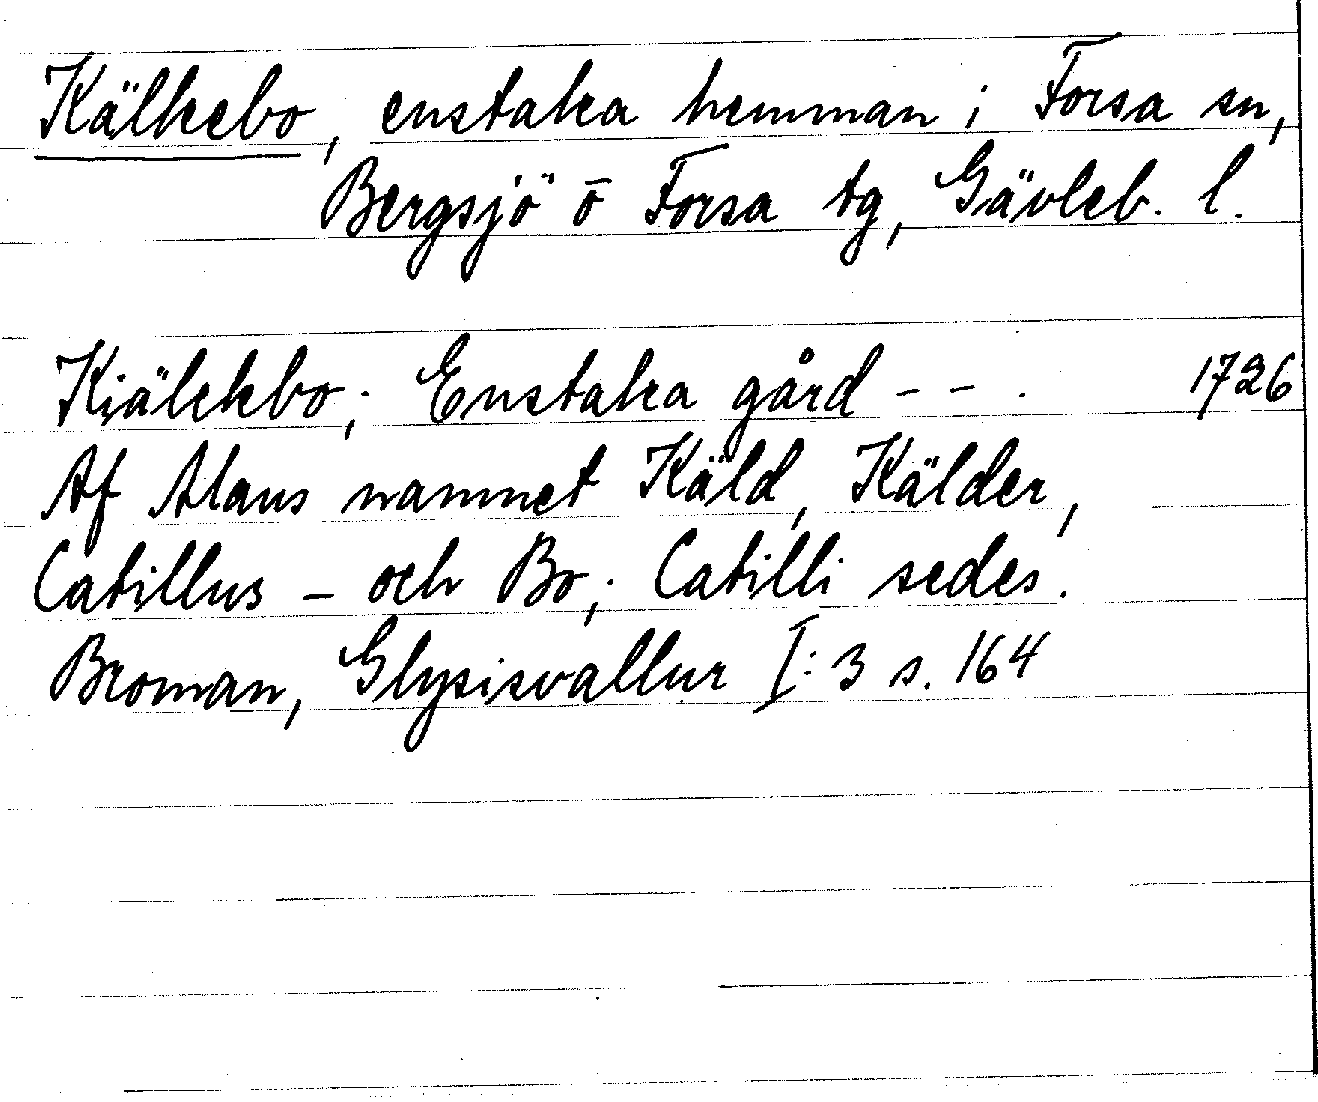 Kälkebo, enstaka hemman i Forsa sn,
Bergsjö o Forsa tg, Gävleb. l.
Kiälckbo; Enstaka gård - - . 1726
Af Alans namnet Käld, Kälder,
Catillus - och Bo; Catilli sedes.
Broman, Glysisvallur I: 3 s. 164